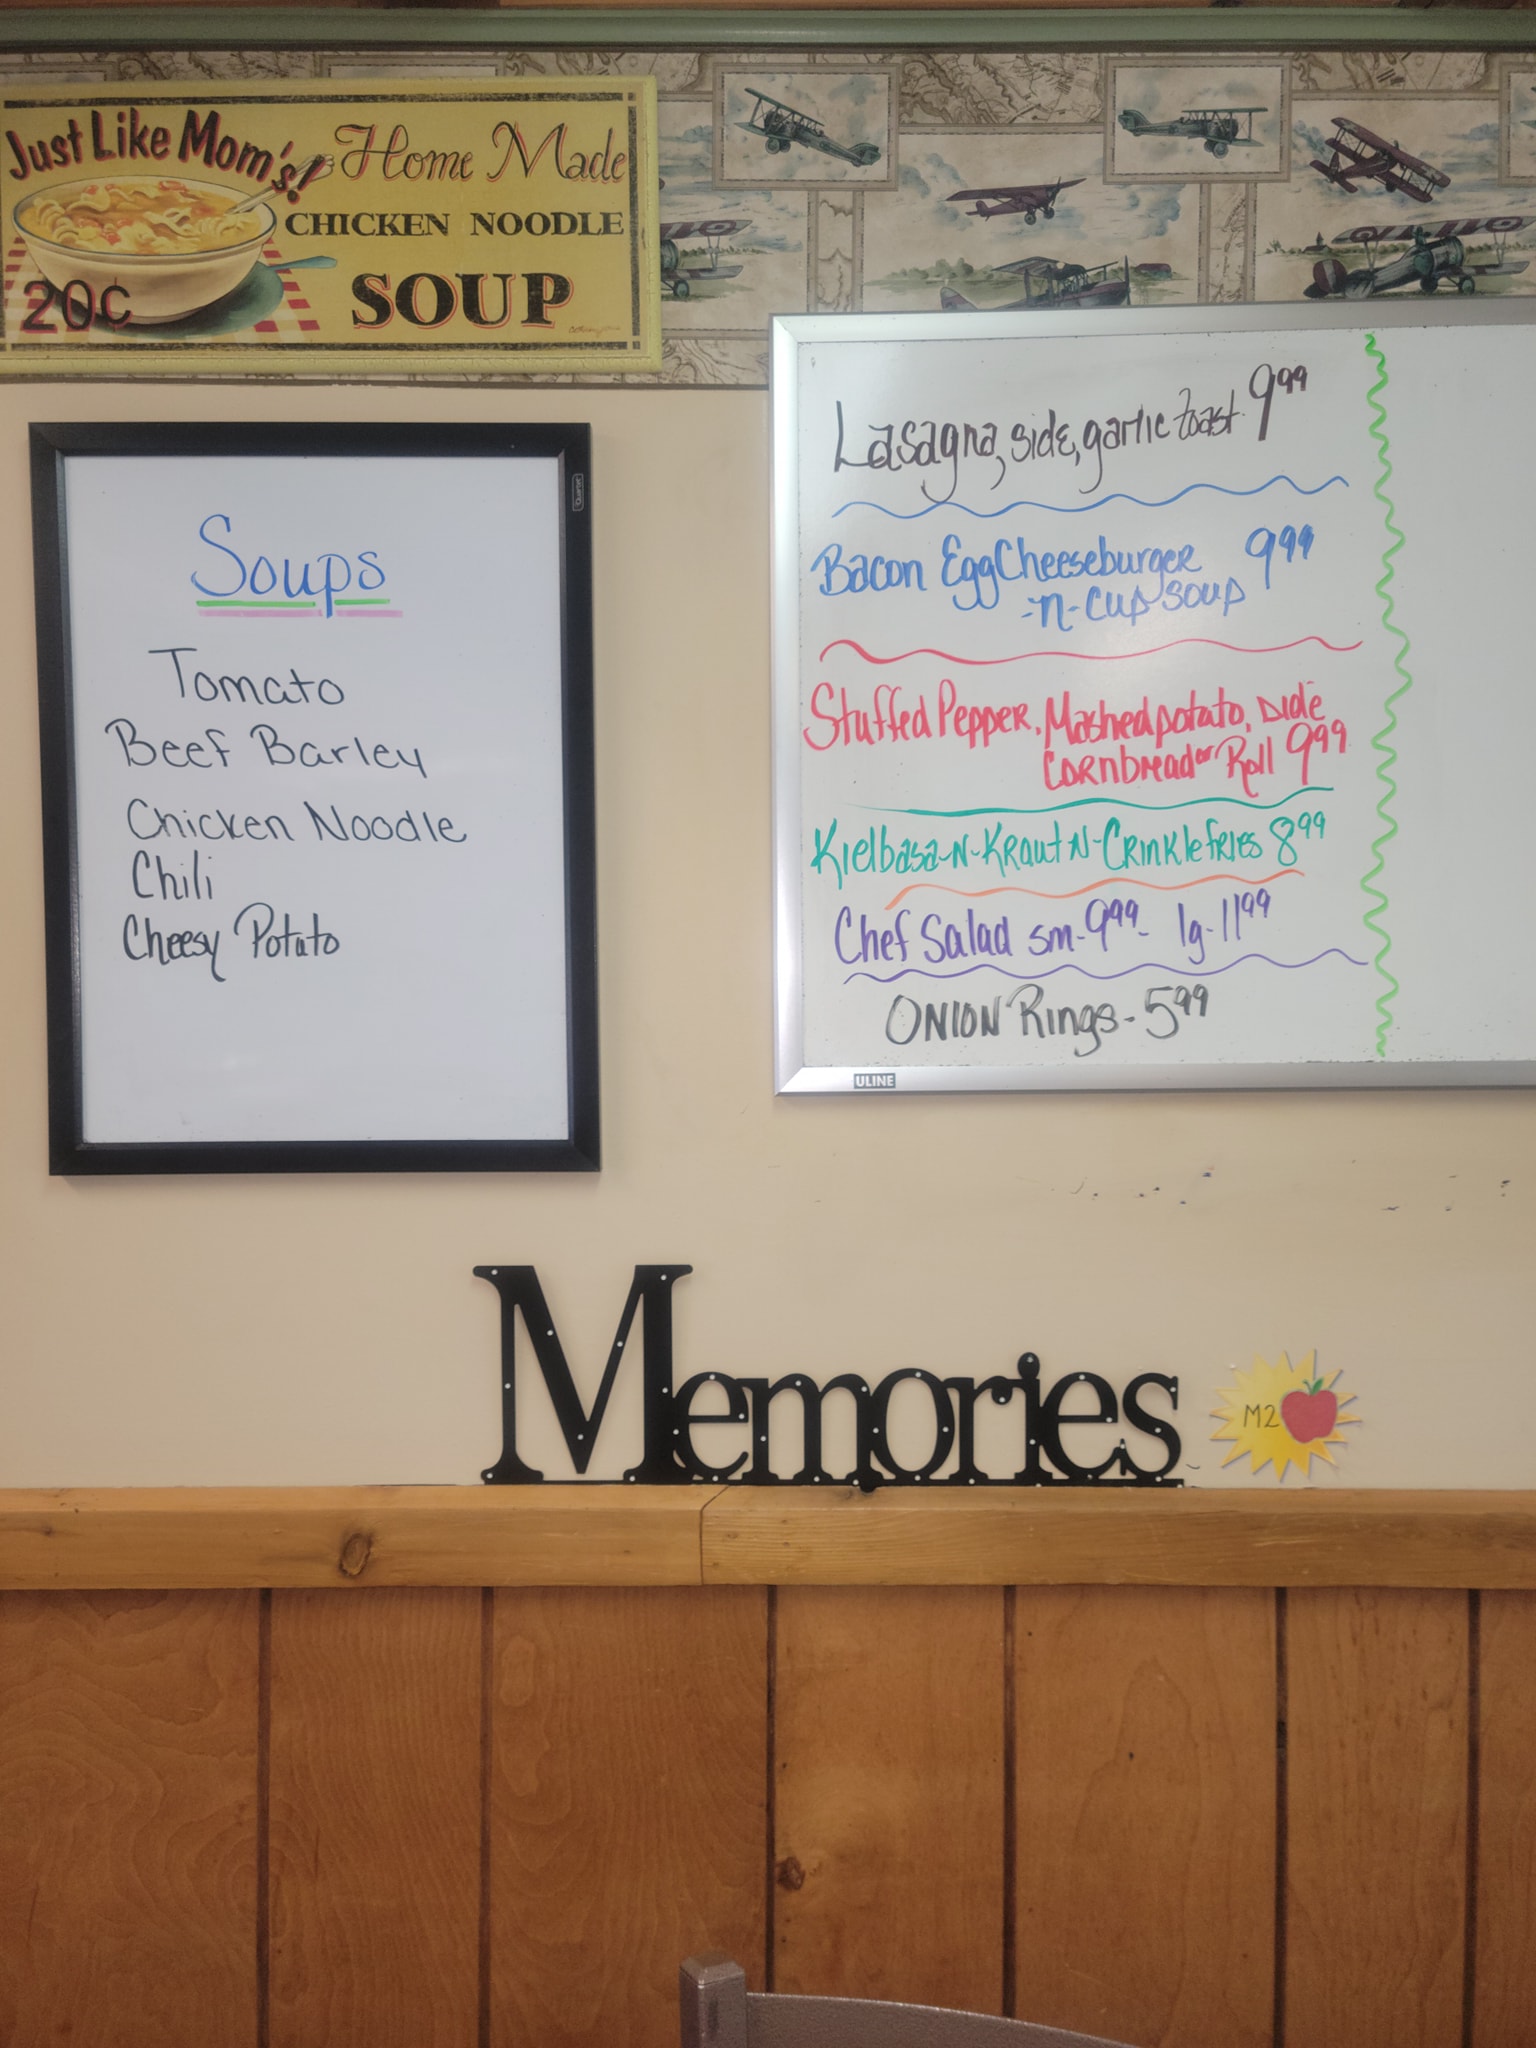 Just Like Mom's!
Home Made
CHICKEN NOODLE
SOUP
20¢
Quartet
Soups
Tomato
Beef Barley
Chicken Noodle
Chili
Cheesy Potato
Lasagna, side, garlic toast 9.99
Bacon Egg Cheeseburger 9.99
-n- cup soup
Stuffed Pepper, Mashed potato, side
Cornbread or Roll 9.99
Kielbasa-N-Kraut N-Crinkle fries 8.99
Chef Salad sm-9.99- lg-11.99
ONION Rings-5.99
ULINE
Memories
M2